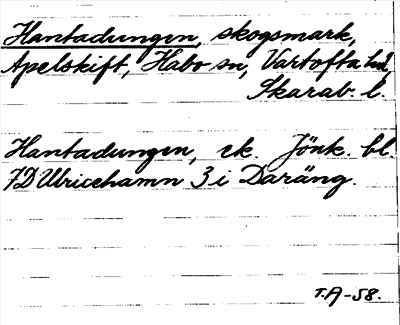 Hantadungen, skogsmark,
Apelskift, Habo sn, Vartofta hd,
Skarab. l.
Hantadungen, ek. Jönk. bl.
7D Ulricehamn 3i Daräng.
T.A-58.